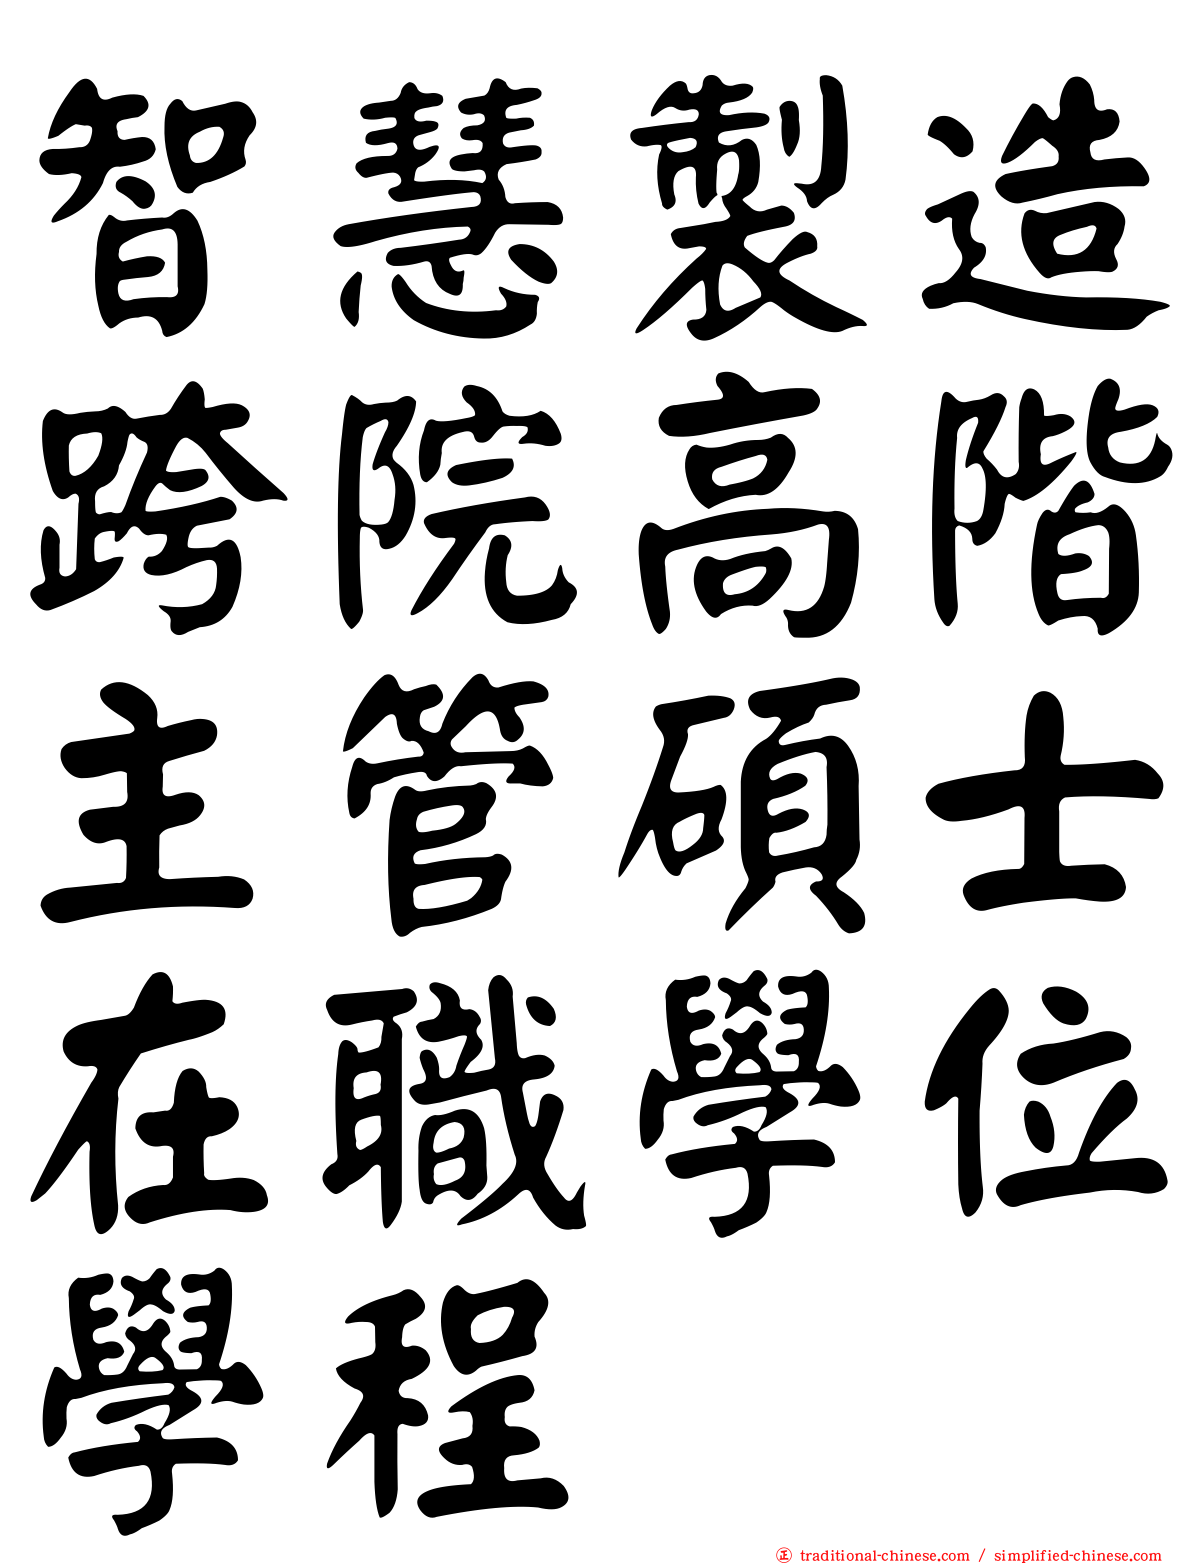 智慧製造
跨院高階
主管碩士
在職學位
學程
正 traditional-chinese.com / simplified-chinese.com